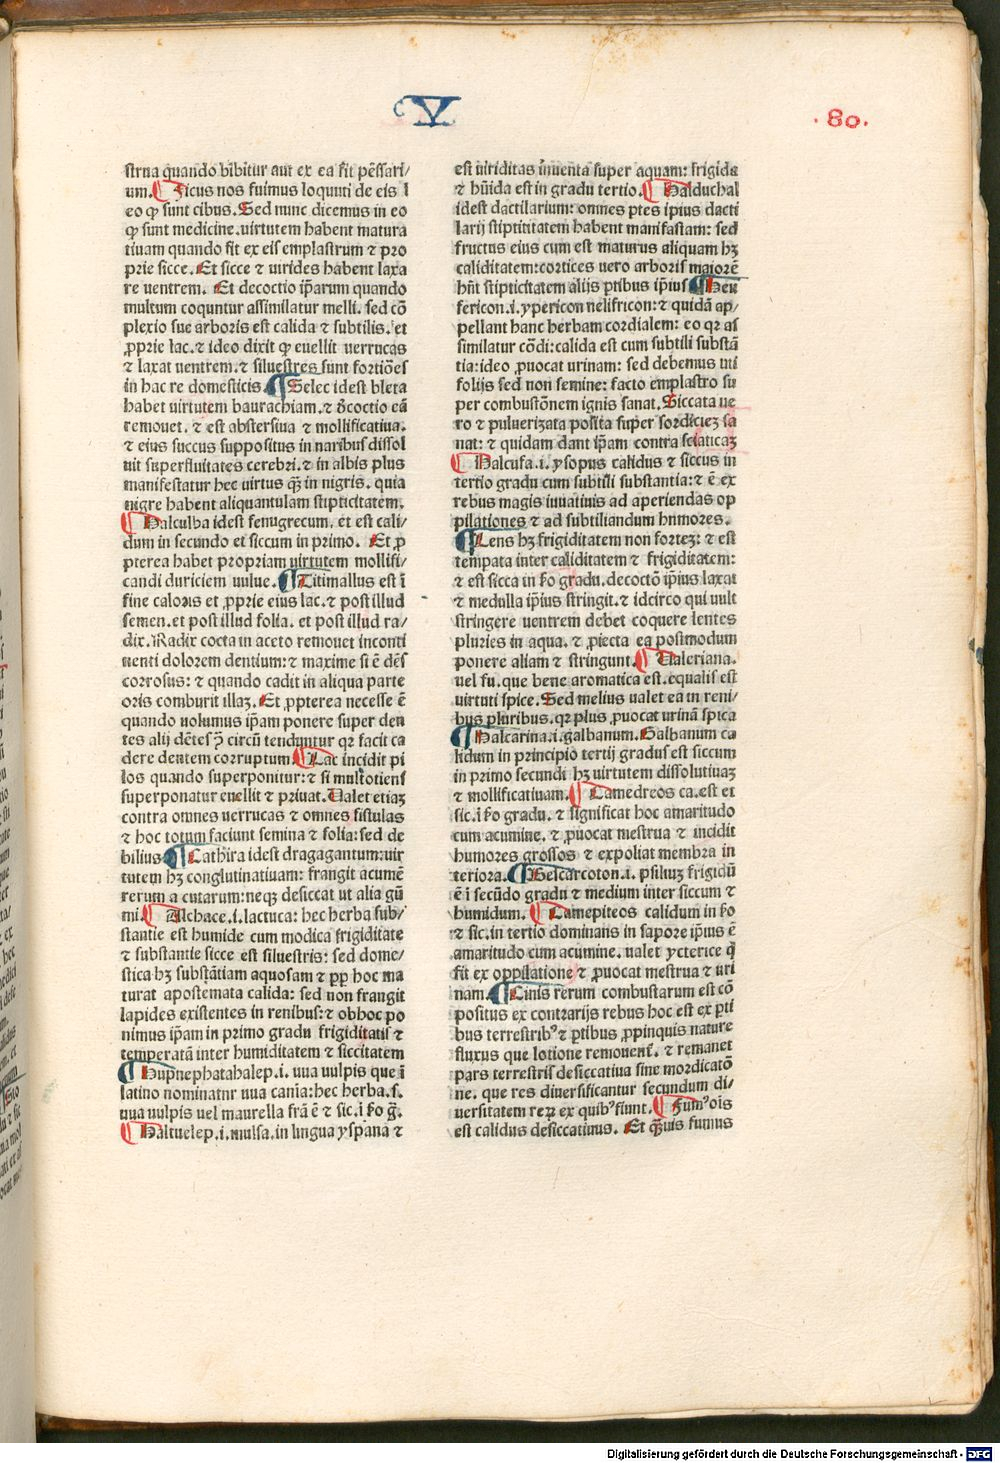 V
.80.
strua quando bibitur aut ex ea fit pēssari/
um. Ficus nos fuimus loquuti de eis i
eo ꝙ sunt cibus. Sed nunc dicemus in eo
ꝙ sunt medicine. uirtutem habent matura
tiuam quando fit ex eis emplastrum ⁊ pro
prie sicce. Et sicce ⁊ uirides habent laxa
re uentrem. Et decoctio ip̄arum quando
multum coquntur assimilatur melli. sed cō
plexio sue arboris est calida ⁊ subtilis. et
ꝓprie lac. ⁊ ideo dixit ꝙ euellit uerrucas
⁊ laxat uentrem. ⁊ siluestres sunt fortiōes
in hac re domesticis. Selec idest bleta
habet uirtutem baurachiam. ⁊ d̄coctio eā
remouet. ⁊ est abstersiua ⁊ mollificatiua.
⁊ eius succus suppositus in naribus dissol
uit superfluitates cerebri. ⁊ in albis plus
manifestatur hec uirtus q̄ȝ in nigris. quia
nigre habent aliquantulam stipticitatem.
Halculba idest fenugrecum. et est cali/
dum in secundo et siccum in primo. Et ꝓ
pterea habet propriam uirtutem mollifi/
candi duriciem uulue. Titimallus est ī
fine caloris et ꝓprie eius lac. ⁊ post illud
semen. et post illud folia. et post illud ra/
dix. Radix cocta in aceto remouet inconti
nenti dolorem dentium: ⁊ maxime si ē dēs
corrosus: ⁊ quando cadit in aliqua parte
oris comburit illaȝ. Et ꝓpterea necesse ē
quando uolumus ip̄am ponere super den
tes alij dētes ꝑ circū tenduntur qr facit ca
dere dentem corruptum. Lac incidit pi
los quando superponitur: ⁊ si multotiens
superponatur euellit ⁊ priuat. Ualet etiaȝ
contra omnes uerrucas ⁊ omnes fistulas
⁊ hoc totum faciunt semina ⁊ folia: sed de
bilius. Cathira idest dragagantum: uir
tutem hȝ conglutinatiuam: frangit acumē
rerum acutarum: neqȝ desiccat ut alia gū
mi. Alchace. i. lactuca: hec herba sub/
stantie est humide cum modica frigiditate
⁊ substantie sicce est siluestris: sed dome/
stica hȝ substātiam aquosam ⁊ ꝓp hoc ma
turat apostemata calida: sed non frangit
lapides existentes in renibus: ⁊ ob hoc po
nimus ip̄am in primo gradu frigiditatis ⁊
temperatā inter humiditatem ⁊ siccitatem
Hupnephatahalep. i. uua uulpis que ī
latino nominatur uua canīa: hec herba. s.
uua uulpis uel maurella frā ē ⁊ sic. i ƙo ḡ.
Haltuelep. i. mulsa. in lingua yspana ⁊
est uiriditas inuenta super aquam: frigida
⁊ hūida est in gradu tertio. Halduchal
idest dactilarium: omnes ptes ipius dacti
larij stiptititatem habent manifastam: sed
fructus eius cum est maturus aliquam hȝ
caliditatem: cortices uero arboris maiorē
hn̄t stipticitatem alijs ptibus ip̄ius. Heu
fericon. i. ypericon nelifricon: ⁊ quidā ap/
pellant hanc herbam cordialem: eo qr as
similatur cōdi: calida est cum subtili substā
tia: ideo ꝓuocat urinam: sed debemus uti
folijs sed non semine: facto emplastro su
per combustōnem ignis sanat. Siccata ue
ro ⁊ puluerizata posita super sordicieȝ sa
nat: ⁊ quidam dant ip̄am contra sciaticaȝ
Halcufa. i. ysopus calidus ⁊ siccus in
tertio gradu cum subtili substantia: ⁊ ē ex
rebus magis iuuatiuis ad aperiendas op
pilationes ⁊ ad subtiliandum humores.
Lens hȝ frigiditatem non forteȝ: ⁊ est
tempata inter caliditatem ⁊ frigiditatem:
⁊ est sicca in ƙo gradu. decoctō ip̄ius laxat
⁊ medulla ip̄ius stringit. ⁊ idcirco qui uult
stringere uentrem debet coquere lentes
pluries in aqua. ⁊ ꝓiecta ea postmodum
ponere aliam ⁊ stringunt. Ualeriana.
uel fu. que bene aromatica est. equalis est
uirtuti spice. Sed melius ualet ea in reni/
bus pluribus. qr plus ꝓuocat urinā spica
Halcarina. i. galbanum. Galbanum ca
lidum in principio tertij gradus est siccum
in primo secundi hȝ uirtutem dissolutiuaȝ
⁊ mollificatiuam. Camedreos ca. est et
sic. i ƙo gradu. ⁊ significat hoc amaritudo
cum acumine. ⁊ ꝓuocat mestrua ⁊ incidit
humores grossos ⁊ expoliat membra in
teriora. Bescarcoton. i. psiliuȝ frigidū
ē i secūdo gradu ⁊ medium inter siccum ⁊
humidum. Camepiteos calidum in ƙo
⁊ sic. in tertio dominatis in sapore ip̄ius ē
amaritudo cum acumine. ualet yctericе q̄
fit ex oppilatione ⁊ ꝓuocat mestrua ⁊ uri
nam. Cinis rerum combustarum est cō
positus ex contrarijs rebus hoc est ex pti
bus terrestrib⁹ ⁊ ptibus ꝓpinquis nature
fluxus que lotione remouent̄. ⁊ remanet
pars terrestris desiccatiua sine mordicatō
ne. que res diuersificantur secundum di/
uersitatem reꝝ ex quib⁹ fiunt. Fum⁹ oīs
est calidus desiccatiuus. Et q̄ȝuis fumus
Digitalisierung gefördert durch die Deutsche Forschungsgemeinschaft - DFG